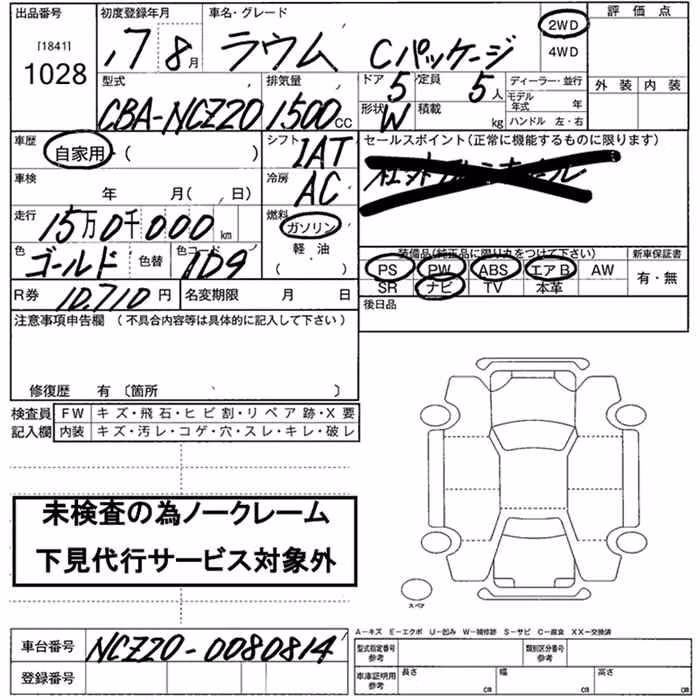 出品番号 初度登録年月 車名・グレード 評価点
[1841]
1028
17 8月 ラウム Cパッケージ 2WD
4WD
外装 内装
型式 排気量 ドア 定員 ディーラー・並行
CBA-NCZ20 1500CC 5 5人
モデル年式 年
形状 積載
W kg ハンドル 左・右
車歴 シフト セールスポイント(正常に機能するものに限ります)
自家用・( ) IAT
車検 冷房
年 月( 日) AC
走行 燃料
15万0千000km ガソリン
色 色替 色コード 軽油
ゴールド 1D9 ( )
装備品(純正品に限り丸をつけて下さい) 新車保証書
PS PW ABS エアB AW 有・無
SR ナビ TV 本革
R券 10,710円 名変期限 月 日
後日品
注意事項申告欄(不具合内容等は具体的に記入して下さい)
修復歴 有〔箇所 〕
検査員記入欄 FW キズ・飛石・ヒビ割・リペア跡・X要
内装 キズ・汚レ・コゲ・穴・スレ・キレ・破レ
未検査の為ノークレーム
下見代行サービス対象外
スペア
A-キズ E-エクボ U-凹み W-補修跡 S-サビ C-腐食 XX-交換済
車台番号 NCZ20-0080814
登録番号
型式指定番号参考 類別区分番号参考
車庫証明用参考 長さ cm 幅 cm 高さ cm